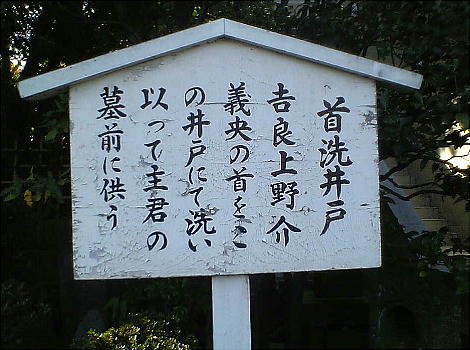 首洗井戸
吉良上野介
義央の首をこ
の井戸にて洗い
以って主君の
墓前に供う